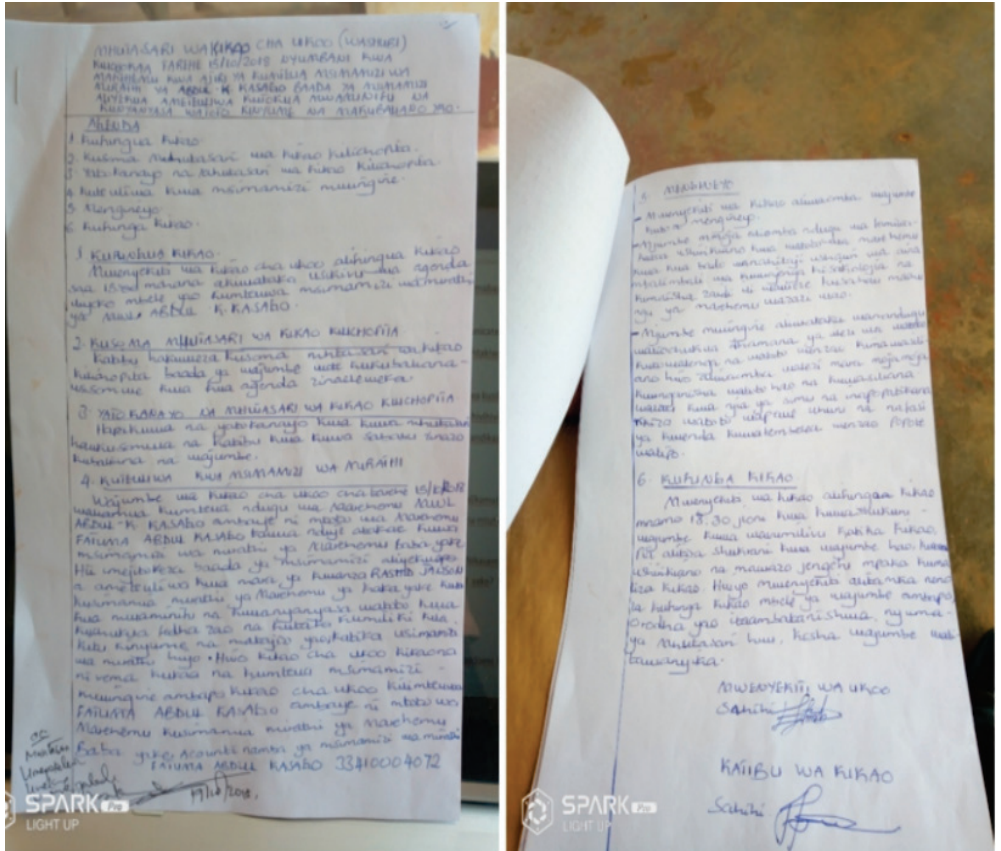 MHUTASARI WA KIKAO CHA UKOO (WASHIRI)
KILICHOKAA TAREHE 15/10/2018 NYUMBANI KWA
MAREHEMU KWA AJILI YA KUMTEUA MSIMAMIZI WA
MIRATHI YA ABDUL K. KASABO BAADA YA MSIMAMIZI
KUTOKUA MWAMINIFU NA
KUNYANYASA WATOTO KINYUME NA MAKUBALIANO YAO.
AGENDA
1. Kufungua kikao.
2. Kusoma Muhutasari wa kikao kilichopita.
3. Yatokanayo na Muhutasari wa kikao kilichopita
4. Kuteuliwa kwa msimamizi mwingine.
5. Mengineyo.
6. Kufunga kikao.
1. KUFUNGUA KIKAO.
Mwenyekiti wa kikao cha ukoo alifungua kikao
saa 15:00 mchana akiwataka wa agenda
iliyoko mbele yao kumteua msimamizi wa mirathi
ya ABDUL K. KASABO.
2. KUSOMA MHUTASARI WA KIKAO KILICHOPITA
Katibu hakuweza kusoma muhutasari wa kikao
kilichopita baada ya wajumbe wote kukubaliana
kwa kuwa agenda
3. YATOKANAYO NA MHUTASARI WA KIKAO KILICHOPITA
Hapakuwa na yatokanayo kwa kuwa muhutasari
haukusomwa na katibu kwa kuwa sababu
na wajumbe.
4. KUTEULIWA KWA MSIMAMIZI WA MIRATHI
Wajumbe wa kikao cha ukoo cha tarehe 15/10/2018
kumteua ndugu wa Marehemu
ABDUL-K KASABO ambaye ni mtoto wa Marehemu
FATUMA ABDUL KASABO kuwa ndiye atakae kuwa
msimamizi wa mirathi ya Marehemu Baba yake
Hii imejitokeza baada ya msimamizi aliyekuwepo
ameteuliwa kwa mara ya kwanza RASHID
kusimamia mirathi ya Marehemu ya kaka yake
kuwa mwaminifu na kuwanyanyasa watoto kwa
fedha zao na kutaka kumiliki kila
kitu kinyume na matakwa ya katika usimamizi
wa mirathi hiyo. Hivyo kikao cha ukoo kikaona
ni vema kukaa na kumteua msimamizi
mwingine ambapo kikao cha ukoo kilimteua
FATUMA ABDUL KASABO ambaye ni mtoto wa
Marehemu kusimamia mirathi ya Marehemu
Baba yake. Account namba ya msimamizi wa mirathi
FATUMA ABDUL KASABO 33410004072
CC
19/10/2018.
SPARK Pro
LIGHT UP
5. MENGINEYO
- Mwenyekiti wa kikao aliwaomba wajumbe
mengineyo.
- Mjumbe mmoja aliomba ndugu wa
ushirikiano kwa watoto wa marehemu
kwa kuwa bado wanahitaji ushauri wa aina
mbalimbali wa kuwajenga kisaikolojia na
kimaisha zaidi
ya marehemu wazazi wao.
- Mjumbe mwingine aliwataka wanandugu
waliochukua dhamana ya ulezi wa watoto
kutowatenga na watoto wenzao
hivyo aliwaomba walezi mara moja moja
kuwakutanisha watoto hao na kuwasiliana
kwa njia ya simu na inapowezekana
watoto wapewe uhuru na nafasi
ya kwenda kuwatembelea wenzao popote
walipo.
6. KUFUNGA KIKAO
Mwenyekiti wa kikao alifunga kikao
mnamo 18:30 jioni kwa kuwashukuru
wajumbe kwa uvumilivu katika kikao.
Pia alitoa shukrani kwa wajumbe hao
ushirikiano na mawazo jengefu mpaka
kikao. Hivyo mwenyekiti alitamka neno
la kufunga kikao mbele ya wajumbe ambapo
Orodha yao itaambatanishwa, nyuma
ya Muhutasari huu. Kisha wajumbe
tawanyika.
MWENYEKITI WA UKOO
Sahihi
KATIBU WA KIKAO
Sahihi
SPARK Pro
LIGHT UP